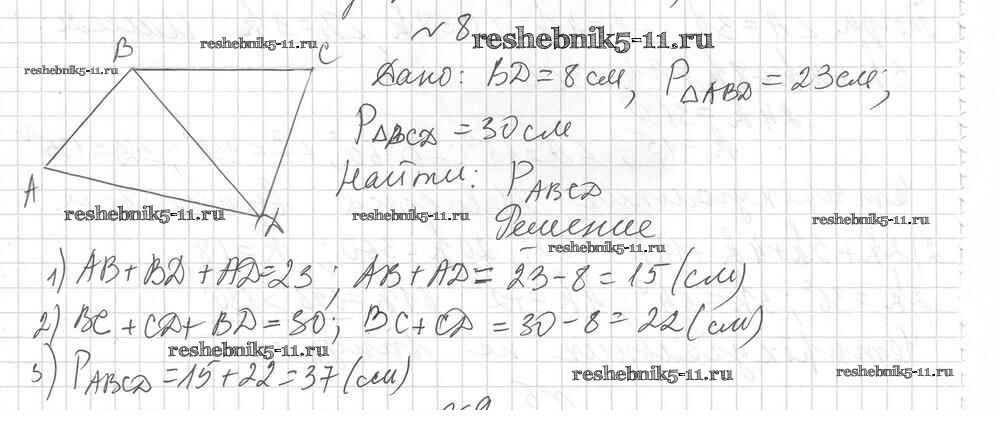 №8
reshebnik5-11.ru
reshebnik5-11.ru
reshebnik5-11.ru
B
C
A
D
Дано: BD = 8 см, P△ABD = 23 см;
P△BCD = 30 см
Найти: PABCD
reshebnik5-11.ru
reshebnik5-11.ru
reshebnik5-11.ru
Решение
reshebnik5-11.ru
1) AB + BD + AD = 23; AB + AD = 23 - 8 = 15 (см)
2) BC + CD + BD = 30; BC + CD = 30 - 8 = 22 (см)
reshebnik5-11.ru
3) PABCD = 15 + 22 = 37 (см)
reshebnik5-11.ru
reshebnik5-11.ru